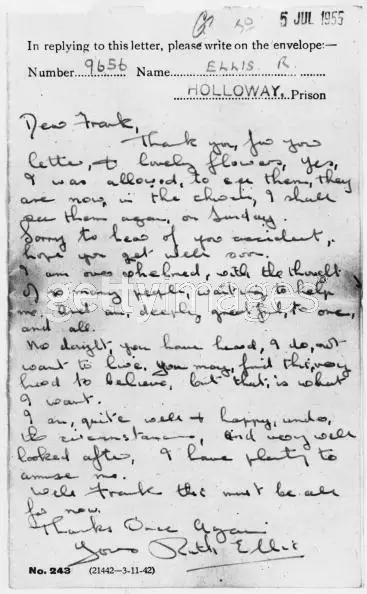 5 JUL 1955
In replying to this letter, please write on the envelope:—
Number 9656 Name ELLIS R.
HOLLOWAY, Prison
Dear Frank,
Thank you, for your
letter, + lovely flowers, yes,
I was allowed, to see them, they
are now, in the church, I shall
see them again, on Sunday.
Sorry to hear of your accident,
hope you get well soon.
I am over whelmed, with the thought
of so many people, wanting to help
me. And am deeply grateful, to one,
and all.
No dought, you have heard, I do, not
want to live. You may, find this, very
hard to believe, but that, is what
I want.
I am, quite well + happy, under,
the circumstances, And very well
looked after, I have plenty to
amuse me.
Well Frank this must be all
for now.
Thanks Once Again
Yours Ruth Ellis
No. 243 (21442—3-11-42)
gettyimages